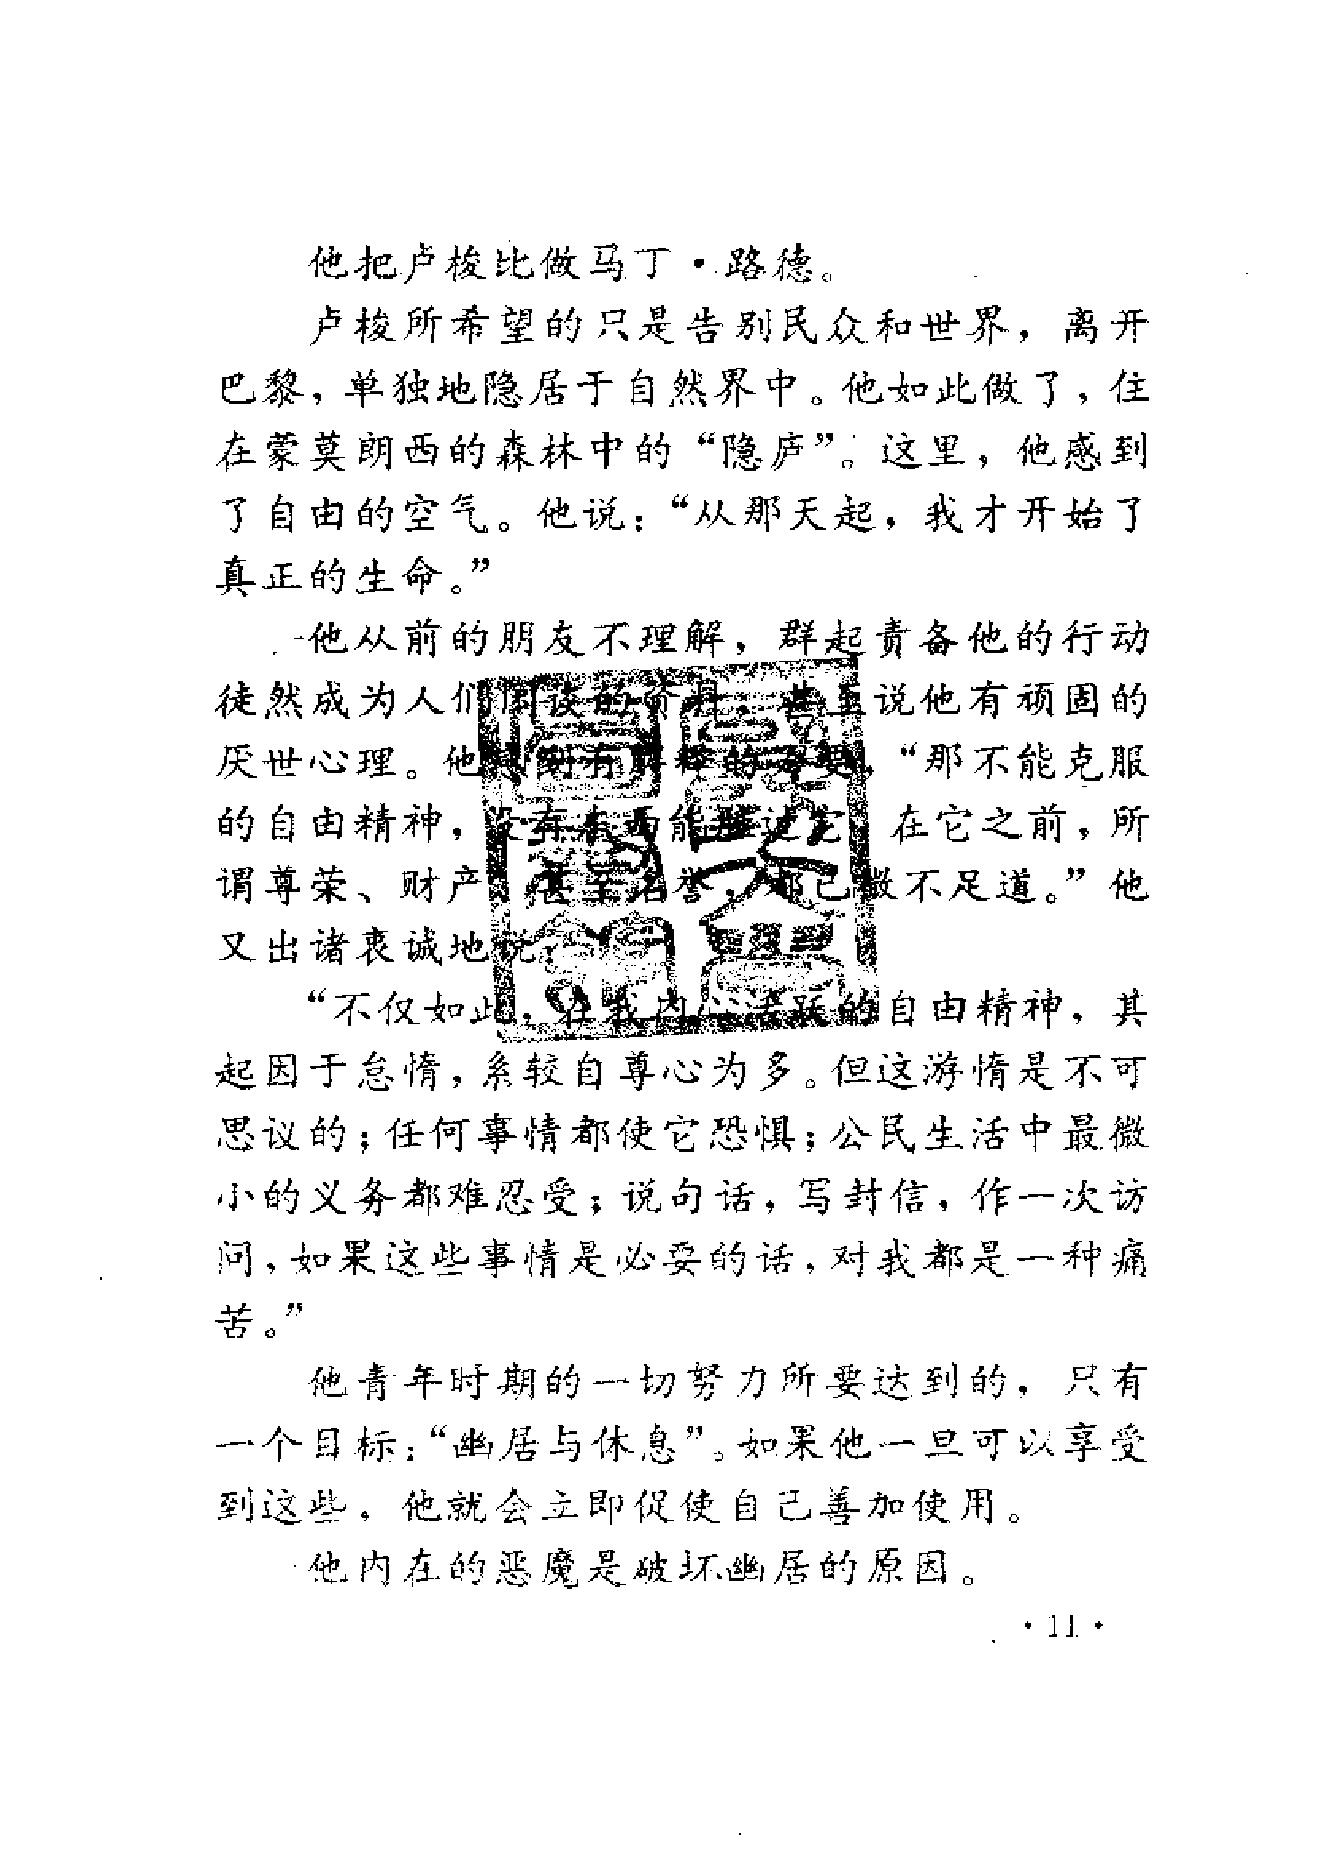 他把卢梭比做马丁·路德。
卢梭所希望的只是告别民众和世界，离开
巴黎，单独地隐居于自然界中。他如此做了，住
在蒙莫朗西的森林中的“隐庐”。这里，他感到
了自由的空气。他说：“从那天起，我才开始了
真正的生命。”
他从前的朋友不理解，群起责备他的行动
徒然成为人们闲谈的资料，甚至说他有顽固的
厌世心理。他感到有解释的必要，“那不能克服
的自由精神，没有东西能胜过它，在它之前，所
谓尊荣、财产、甚至名誉，都已微不足道。”他
又出诸衷诚地说：
“不仅如此，在我内心活跃的自由精神，其
起因于怠惰，系较自尊心为多。但这游惰是不可
思议的；任何事情都使它恐惧；公民生活中最微
小的义务都难忍受；说句话，写封信，作一次访
问，如果这些事情是必要的话，对我都是一种痛
苦。”
他青年时期的一切努力所要达到的，只有
一个目标：“幽居与休息”。如果他一旦可以享受
到这些，他就会立即促使自己善加使用。
他内在的恶魔是破坏幽居的原因。
·11·